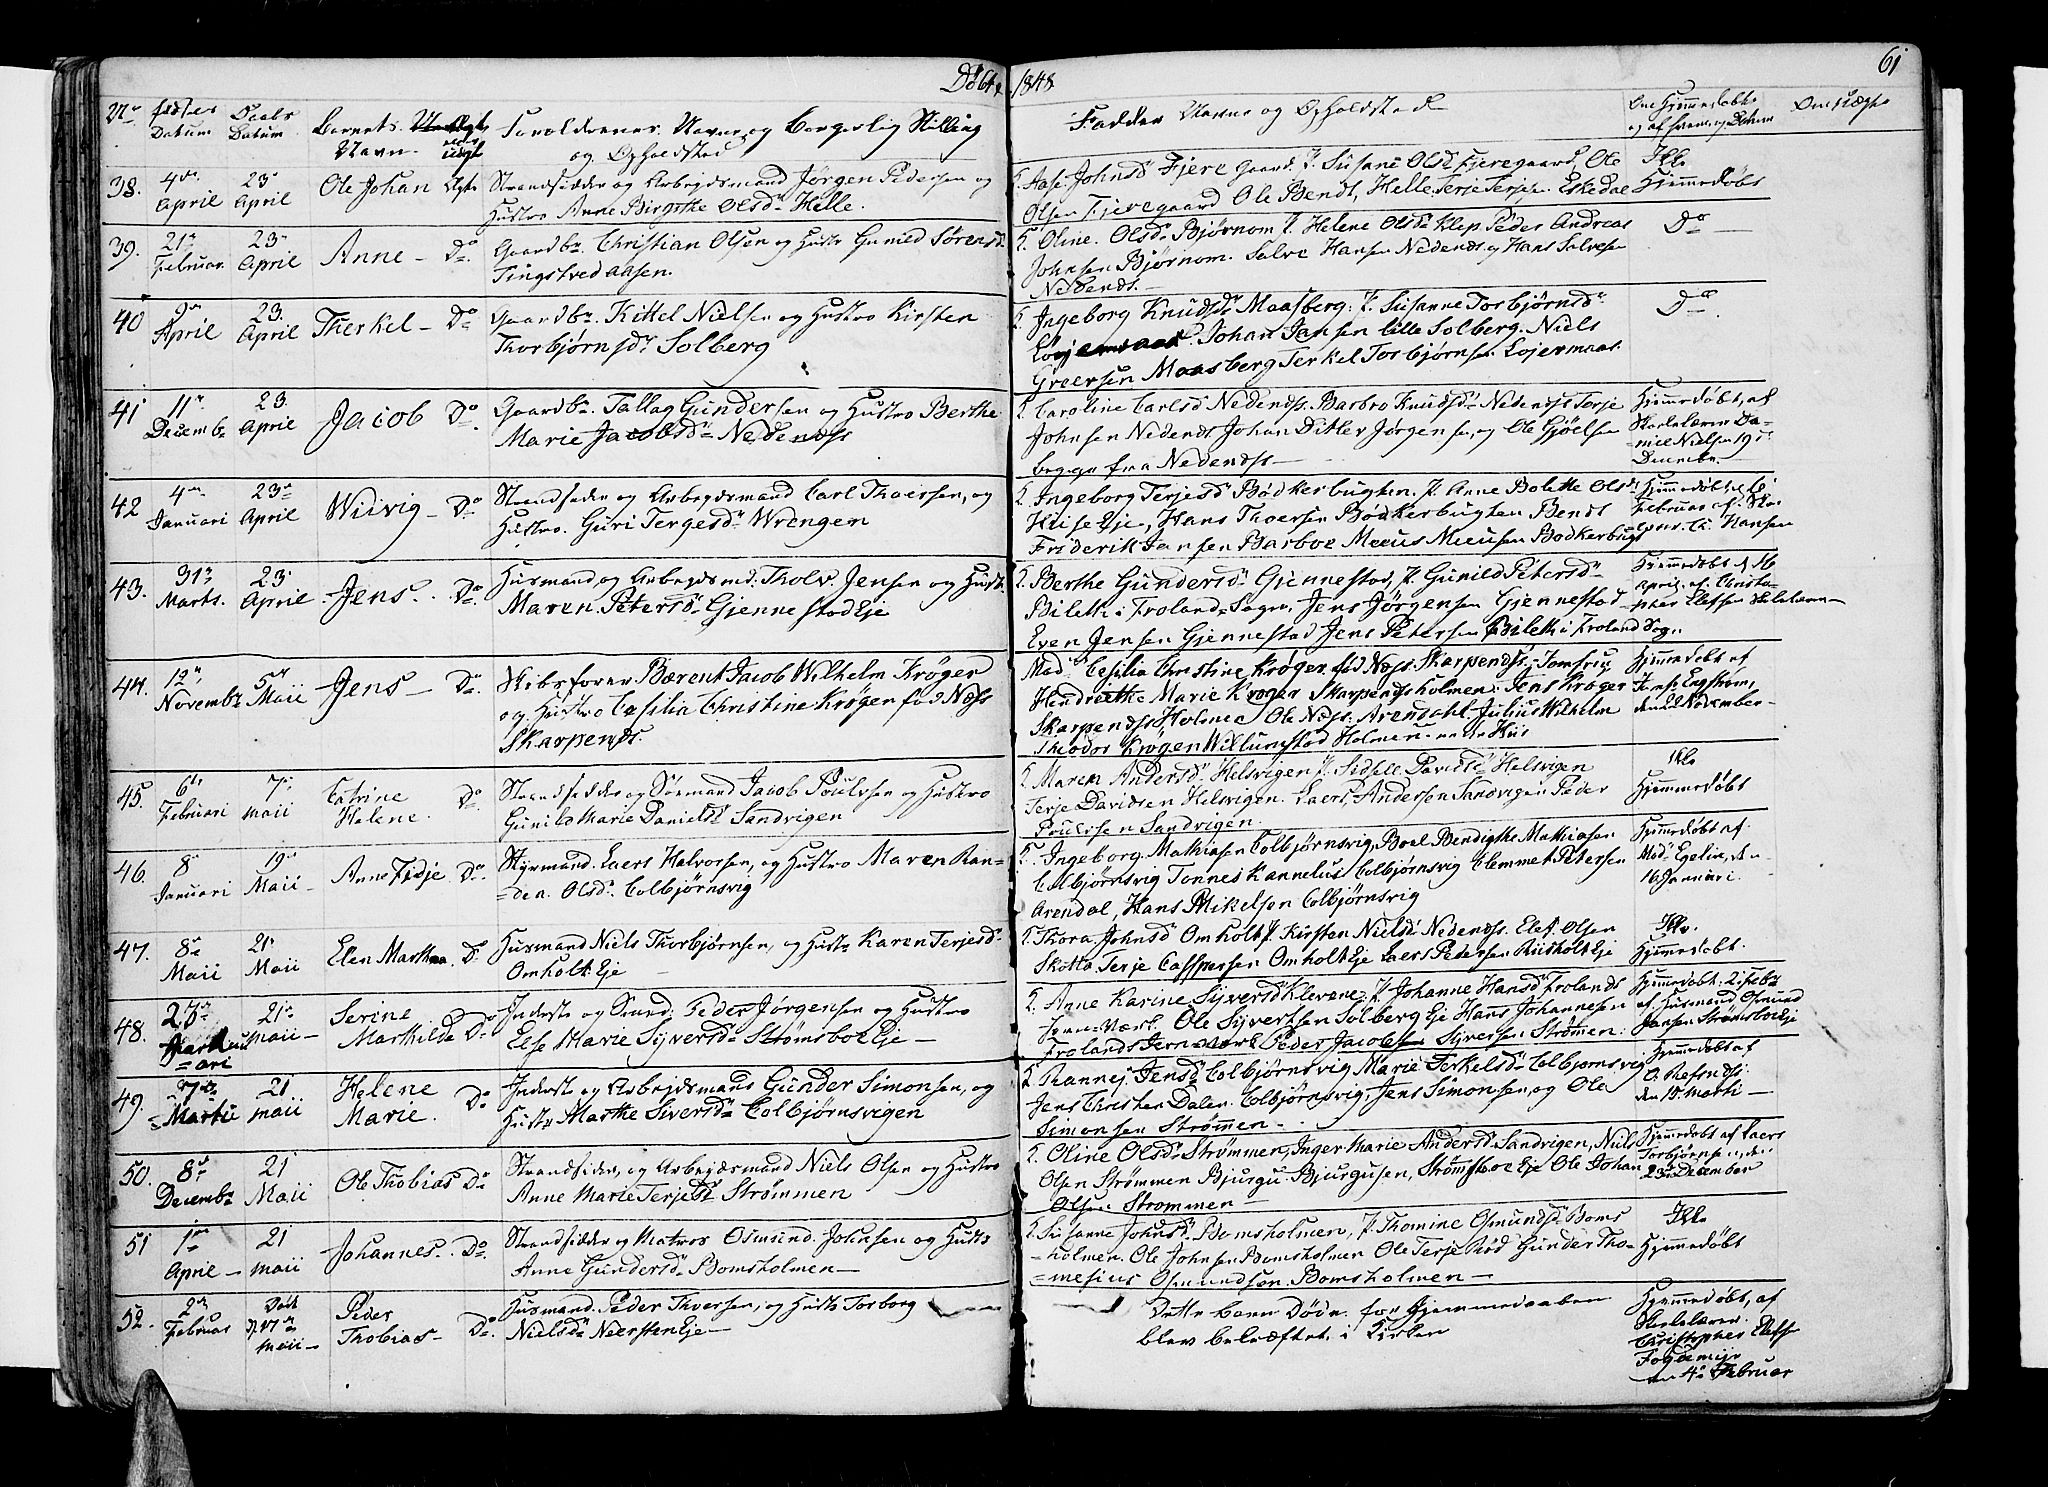 Døbte 1848
61
No Fødsels Datum Daabs Datum Barnets Navn Ægte eller uægt Forældrenes Navne og Borgerlig Stilling og Opholdsted
Fadder Navne og Opholdsted Om Hjemmedøbt og af hvem og Datum
38. 4de April 23 April Ole Johan Ægte
Strandsidder og Arbeidsmand Jørgen Pedersen og
Hustro Anne Birgithe Olsdr Helle.
F. Aase Johnsd Fjære Gaard, Susane Olsd Fjæregaard, Ole
Olsen Fjæregaard Ole Bendt, Helle Terje Terjesen Eskedal
Ikke Hjemmedøbt
39. 21 Februar 23 April Anne Do
Gaardbr. Christian Olsen og Hustr Guniled Sørensd
Tingstvedaasen.
F. Oline Olsd Bjørnom Helene Olsdr Klep. Peder Andreas
Johnsen Bjørnom. Salve Hansen Nedenes og Hans Salvesen
Nedends.
Do
40 9de April 23 April Therkel Do
Gaardbr. Kittel Nielsen og Hustro Kirsten
Thorbjørnsdr Solberg
F. Ingeborg Knudsdr Maasberg. Susanne Torbjørnsdr
Johan Jansen lille Solberg. Niels
Greersen Maasberg Terkel Torbjørnsen Lojermaas.
Do
41 11 Decembr 23 April Jacob Do
Gaardbr. Tallag Gundersen og Hustro Berthe
Marie Jacobsdr Nedendss
F. Caroline Carlsd Nedendss. Barbro Knudsdr Nedendss Terje
Johnsen Nedends Johan Ditlev Jørgensen, og Ole Gjøelsen
begge fra Nedendss
Hjemmedøbt, af
Skolelærer Da-
niel Nielsen 19
Decembr.
42 4de Januari 23 April Wiivig Do
Strandsider og Arbeidsmand Carl Thoersen, og
Hustro Guri Tergesdr Wrengen
F. Ingeborg Terjesdr Bødkerbugten. Anne Bolette Olsd
Eje, Hans Thoersen Bødkerbugten Bendt
Friderik Jansen Barboe Meeus Meeusen Bødkerbugt
Hjemmedøbt
Februar af
Hansen
43. 31 Marts 23 April Jens Do
Husmand og Arbeidsmd. Tholv Jensen og Hustr.
Maren Petersdr Gjennestad Eje
F. Berthe Gundersdr Gjennestad, Gunild Petersdr
Bileth i Froland Sogn, Jens Jørgensen Gjennestad
Even Jensen Gjennestad Jens Petersen Bileth i Froland Sogn
Hjemmedøbt
April af Christo-
pher Elefsen
44. 12 Novembr 5te Maii Jens Do
Skibsfører Bærent Jacob Wilhelm Krøger
og Hustro Cesilia Christine Krøger fød Næss
Skarpends.
Mad. Cesilia Christine Krøger fød Næss Skarpendss. Jomfru
Hendriethe Marie Krøger Skarpendssholmen Jens Krøger
Skarpendss Holmen Ole Næss Arendahl Julius Wilhelm
Theodor Krøger Holmen
Hjemmedøbt af
Engstrøm,
November
45. 6te Februari 7 Maii Catrine Helene. Do
Strandsidder og Sømand Jacob Poulssen og Hustro
Gunild Marie Danielsdr Sandvigen
F. Maren Andersdr Helsvigen Sidsell Davidsdr Helsvigen
Terje Davidsen Helsvigen. Laers Andersen Sandvigen Peder
Poulssen Sandvigen.
Ikke
Hjemmedøbt
46. 8 Januari 19 Maii Anne Tidje Do
Styrmand Laers Halvorsen, og Hustro Maren Ran-
dea Olsdr Colbjørnsvig
F. Ingeborg Mathiasen Colbjørnsvig, Boel Bendigthe Mathiasen
Colbjørnsvig Tønnes Kannelus Colbjørnsvig Clemmet Petersen
Arendal, Hans Mikelsen Colbjørnsvig
Hjemmedøbt af
Mad. Egelin, den
16 Januari.
47. 8de Maii 21 Maii Elen Marthea Do
Husmand Niels Thorbjørnsen, og Hustr Karen Terjesdr
Omholt Eje
F. Thora Johnsd Omholt Kirsten Nielsd Nedendss. Elef. Olsen
Skotta Terje Casspersen Omholt Eje Laers Pedersen Rusholt Eje
Ikke
Hjemmedøbt.
48. 27de Januari 21 Maii Serine Mathilde Do
Inderste og Smed. Peder Jørgensen og Hustro
Else Marie Sijversdr Strømsboe Eje
F. Anne Karine Sijversdr Klevene, Johanne Hansdr Frolands
Jerneværk. Ole Sijvertsen Solberg Eje Hans Johannesen
Frolands Jerneværk Peder Jacobsen Sijversen Strømmen
Hjemmedøbt. 2 Febr
af Husmand Osmund
Jansen Strømsboe Eje
49. 7de Marti 21 Maii Helene Marie. Do
Inderste og Arbejdsmand Gunder Simonsen, og
Hustr Marthe Siversdr Colbjørnsvigen
F. Rannej Jensd Colbjørnsvig Marie Terkelsdr Colbjørnsvig
Jens Christen Dalen Colbjørnsvig, Jens Simonsen, og Ole
Simonsen Strømmen.
Hjemmedøbt af
O. Refsnes
den 15 Marti
50. 8de Decembr 21 Maii Ole Thobias Do
Strandsider, og Arbejdsmand Niels Olsen og Hustro
Anne Marie Terjesdr Strømmen
F. Oline Olsdr Strømmen, Inger Marie Andersdr Sandvigen, Niels
Olsen Strømmen Bjurgu Bjurgusen, Strømsboe Eje Ole Johan
Olsen Strømmen
Hjemmedøbt af Laers
Torbjørnsen, den
23 December
51 1ste April 21 Maii Johannes Do
Strandsidder og Matros Osmund Johnsen og Hustr
Anne Gundersdr Bomsholmen
F. Susanne Johnsdr Bomsholmen, Thomine Osmundsdr Boms
holmen. Ole Johnsen Bomsholmen Ole Terje Rød Gunder Tho-
mesius Osmundsen Bomsholmen
Ikke
Hjemmedøbt
52. 2de Februar Død Maii Peder Thobias Do
Husmand Peder Thversen, og Hustr Torborg
Nielsdr Neersten Eje
Dette barn Døde før Hjemmedaaben
blev bekræftet i Kirken
Hjemmedøbt, af
Skolelærer
Christopher Elefsen
Fogdemijr
den 4de Februar